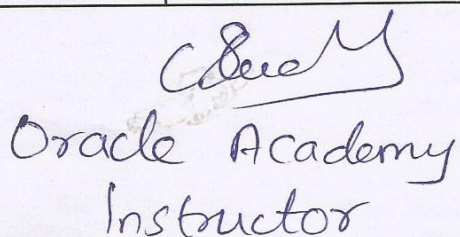 Oracle Academy
Instructor